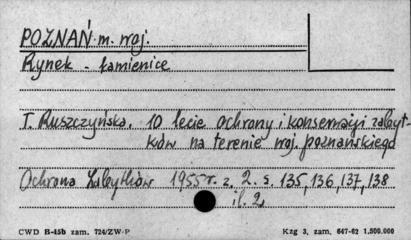 POZNAŃ m. woj.
Rynek - kamienice
T. Ruszczyńska. 10 lecie ochrony i konserwacji zabyt-
ków na terenie woj. poznańskiego
Ochrona Zabytków 1955 r. z. 2. s. 135, 136, 137, 138
il. 2
CWD B-45b zam. 724/ZW-P
Kzg 3, zam. 647-62 1,500.000